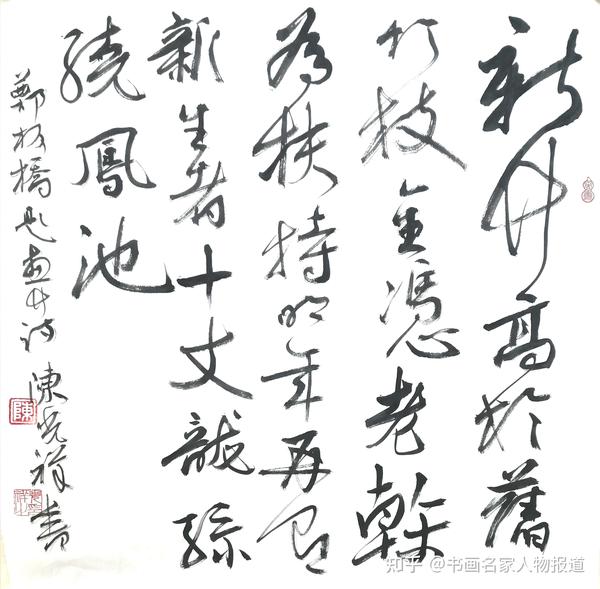 新竹高於舊
竹枝全憑老幹
為扶持明年再有
新生者十丈龍孫
繞鳳池
鄭板橋題畫竹詩 陳祥書
陳
知乎 @书画名家人物报道